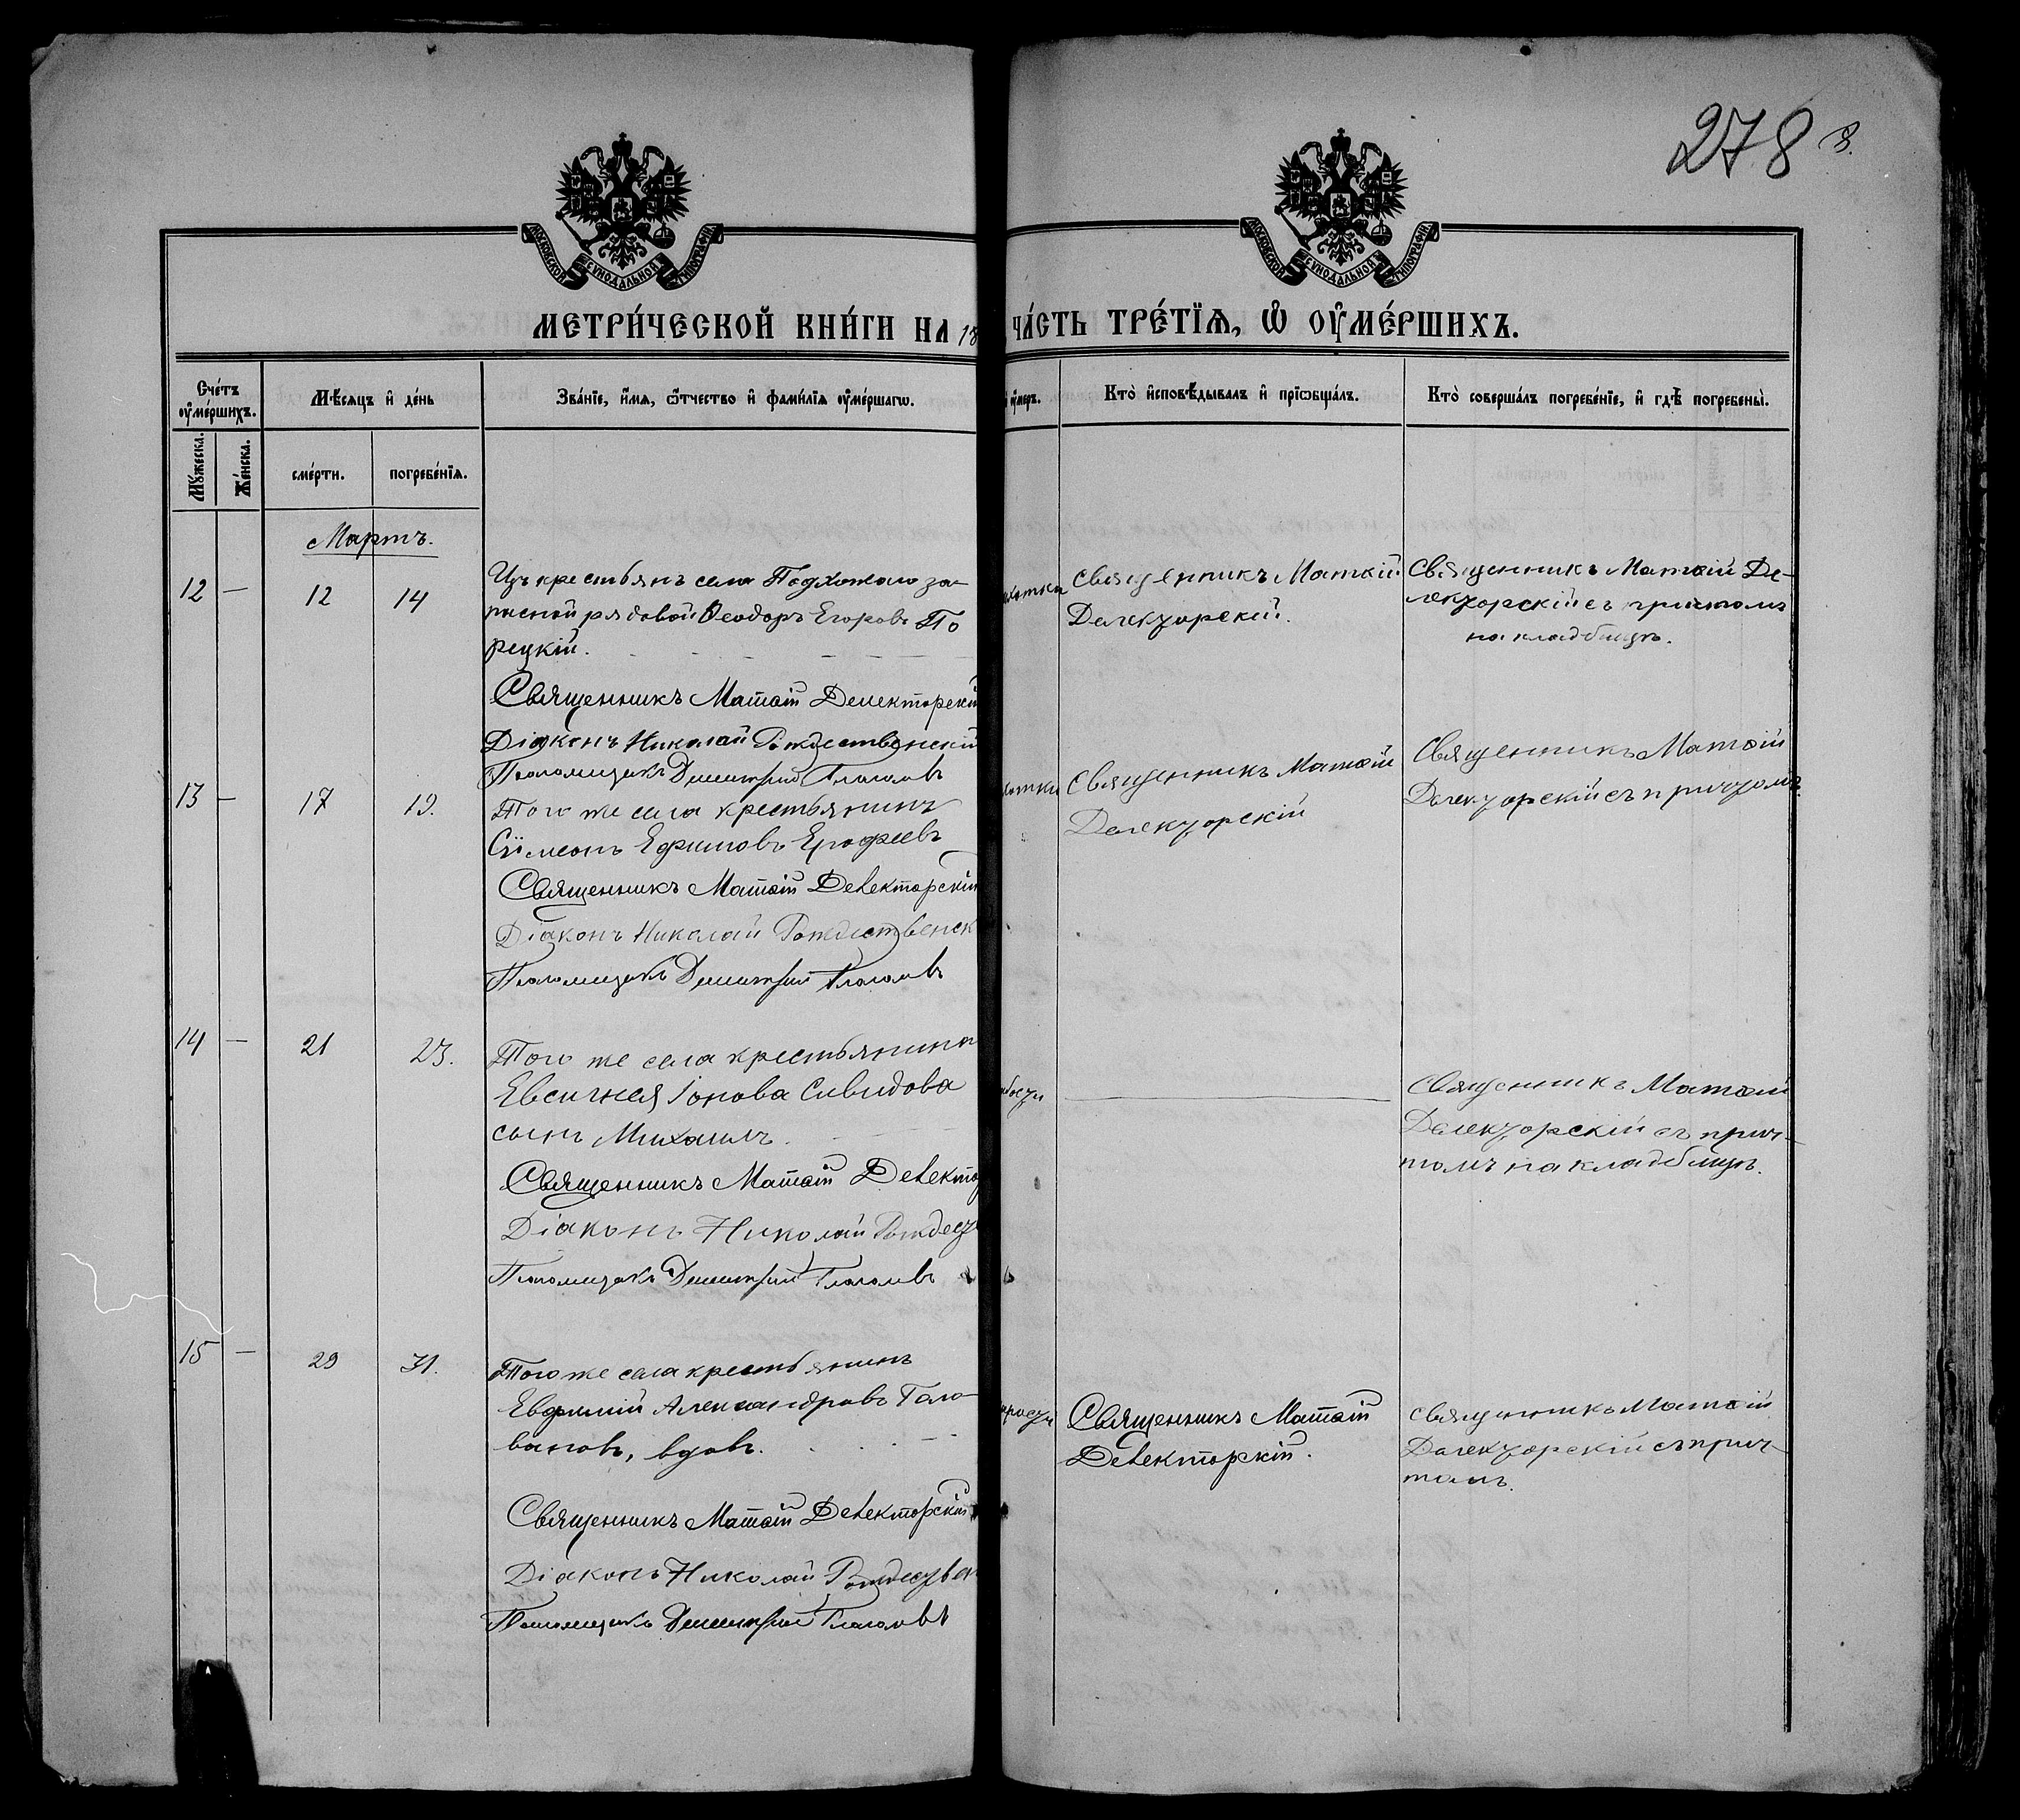 278
МОСКОВСКОЙ СУНОДАЛЬНОЙ ТИПОГРАФІИ
МОСКОВСКОЙ СУНОДАЛЬНОЙ ТИПОГРАФІИ
МЕТРИ́ЧЕСКОЙ КНИ́ГИ НА 18
ЧА́СТЬ ТРЕ́ТІѦ, Ѡ ОУМЕ́РШИХЪ.
Сче́тъ оуме́ршихъ.
Мѣ́сяцъ и де́нь
Зва́нїе, и́мя, ѻтчество и фами́лїя оуме́ршагѡ.
оумеръ.
Кто̀ исповѣ́дывалъ и прїѡбща́лъ.
Кто̀ соверша́лъ погребе́нїе, и гдѣ̀ погребены̀.
Мꙋ́жеска.
Же́нска.
сме́рти.
погребе́нїя.
Мартъ.
12 — 12 14
Изъ крестьянъ села Подхожаго за-
пасной рядовой Ѳеодоръ Егоровъ По
рецкій.
Священникъ Матѳій Делекторскій
Діаконъ Николай Рождественскій
Псаломщикъ Димитрій Глаголевъ
чахотки
Священникъ Матѳій
Делекторскій.
Священникъ Матѳій Де-
лекторскій съ причтомъ
на кладбищѣ.
13 — 17 19.
Того же села крестьянинъ
Сѷмеонъ Ефимовъ Ерофеевъ
Священникъ Матѳій Делекторскій
Діаконъ Николай Рождественск
Псаломщикъ Димитрій Глаголевъ
хотки
Священникъ Матѳій
Делекторскій
Священникъ Матѳій
Делекторскій съ причтомъ.
14 — 21 23.
Того же села крестьянина
Евсигнея Іонова Сивидова
сынъ Михаилъ.
Священникъ Матѳій Делекто
Діаконъ Николай Рождест
Псаломщикъ Димитрій Глаголевъ
бости
Священникъ Матѳій
Делекторскій съ прич-
томъ на кладбищѣ.
15 — 29 31.
Того же села крестьянинъ
Евфимій Александровъ Голо-
вановъ, вдовъ.
Священникъ Матѳій Делекторскій
Діаконъ Николай Рождествен
Псаломщикъ Димитрій Глаголевъ
рости
Священникъ Матѳій
Делекторскій.
Священникъ Матѳій
Делекторскій съ прич-
томъ.